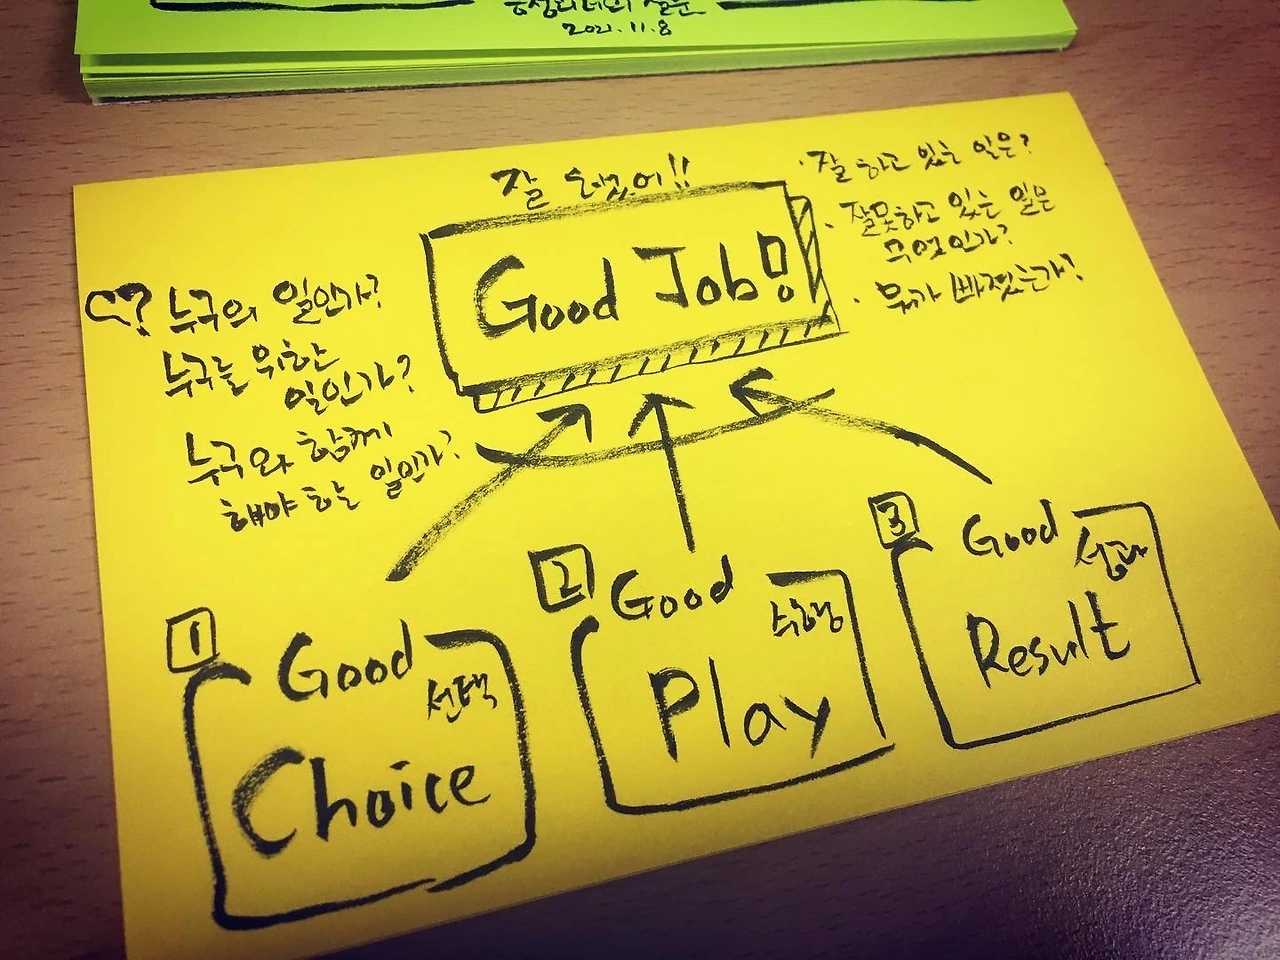 2021.11.8
잘 했어!!
Good Job!
· 잘 하고 있는 일은?
· 잘못하고 있는 일은
무엇인가?
· 뭐가 빠졌는가?
누구의 일인가?
누구를 위한
일인가?
누구와 함께
해야 할 일인가?
1
Good
선택
Choice
2
Good
수행
Play
3
Good
성과
Result